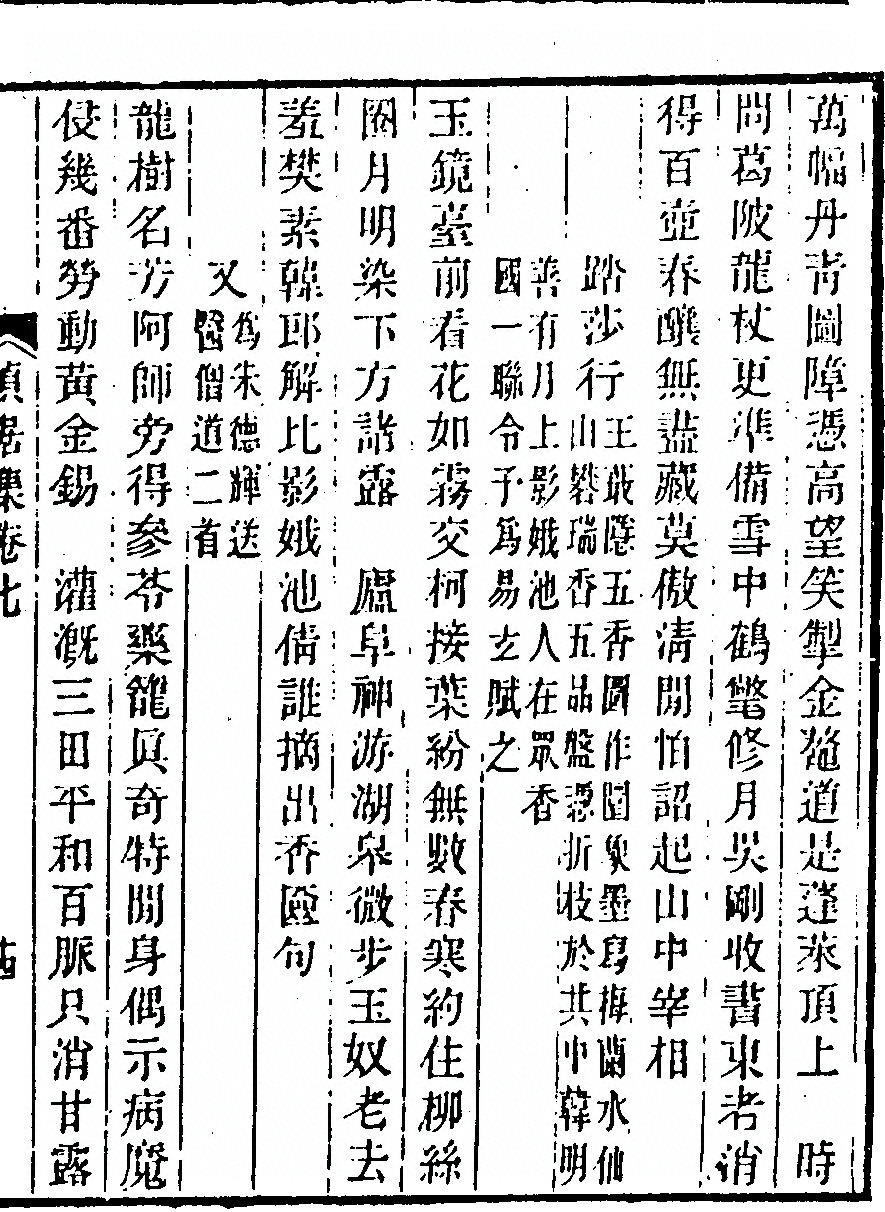 萬幅丹青圖障憑高望笑掣金鼇道是蓬萊頂上　時
問葛陂龍杖更準備雪中鶴氅修月吳剛收書東老消
得百壺春釀無盡藏莫傲淸閒怕詔起山中宰相
踏莎行
王戢隱五香圖作圖象墨寫梅蘭水仙
山礬瑞香五品盤折枝於其中韓明
善有月上影娥池人在眾香
國一聯令予爲易玄賦之
玉鏡臺前看花如霧交柯接葉紛無數春寒約住柳絲
圈月明染下方諸露　廬阜神游湖皋微步玉奴老去
羞樊素韓郎解比影娥池倩誰摘出香匳句
又
爲朱德輝送
醫僧道二首
龍樹名芳阿師旁得參苓藥籠眞奇特閒身偶示病魔
侵幾番勞動黃金錫　灌溉三田平和百脈只消甘露
貞居集卷七